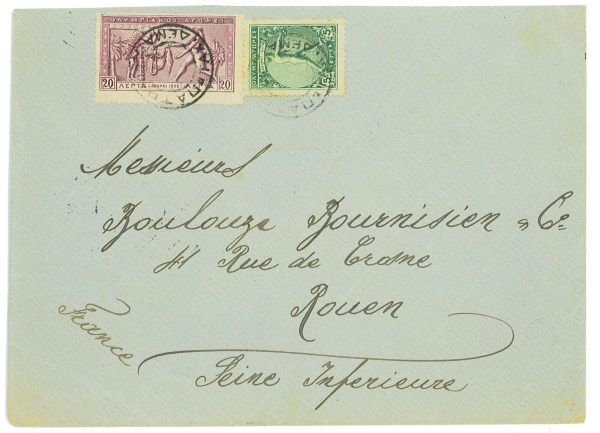 ΟΛΥΜΠΙΑΚΟΙ ΑΓΩΝΕΣ
20 ΛΕΠΤΑ 20
Messieurs
Boulouze Bournisien & Cie
41 Rue de Crosne
Rouen
France
Seine Inferieure